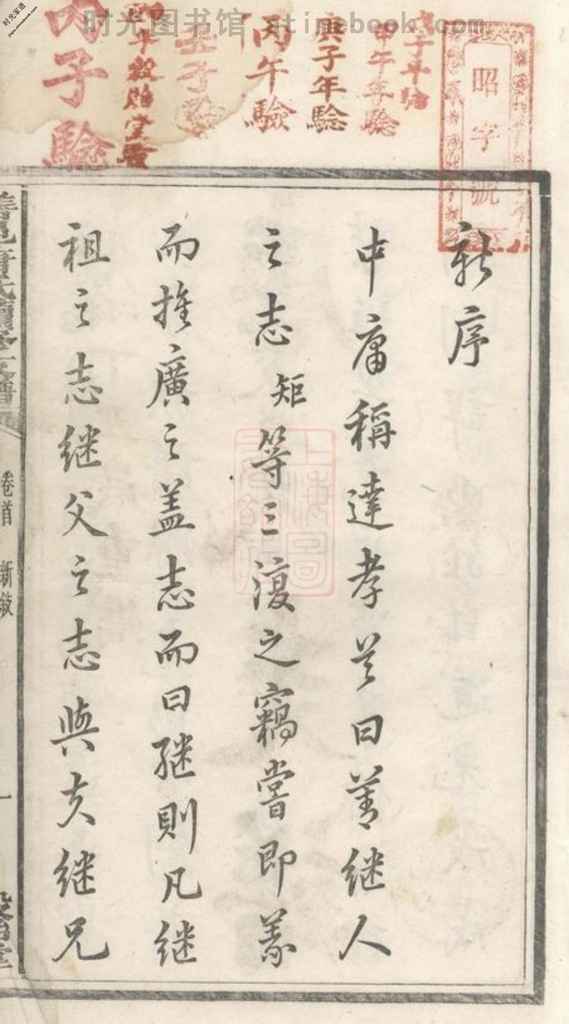 时光图书馆 - timebook.com
昭字號
戊子年驗
甲午年驗
庚子年驗
丙午驗
壬子驗
穀貽堂
丙子驗
新序
中庸稱達孝首曰善繼人
之志矩等三復之竊嘗即義
而推廣之盖志而曰繼則凡继
祖之志继父之志與夫继兄
卷首 新敘
一